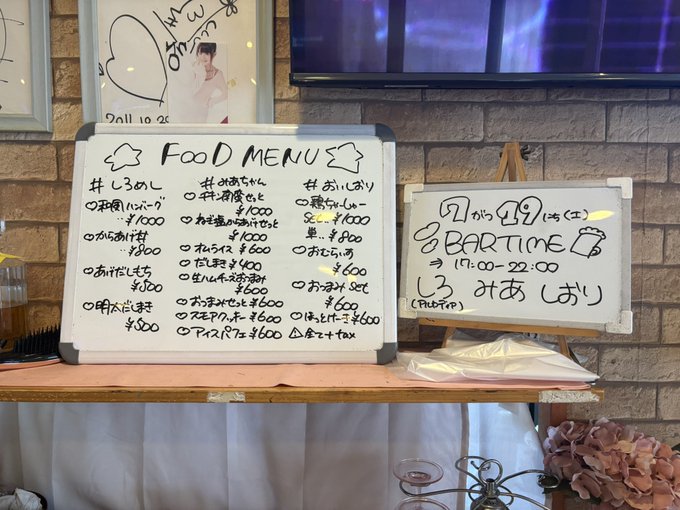 2011.10.29
FOOD MENU
# しろめし
♡和風ハンバーグ
‥¥1000
♡からあげ丼
¥800
♡あげだしもち
¥500
♡明太だしまき
¥500
# みあちゃん
♡チキン南蛮せっと
¥1000
♡ねぎ塩からあげせっと
¥1000
♡オムライス ¥600
♡だしまき ¥400
♡生ハムチーズおつまみ
¥600
♡おつまみせっと ¥600
♡スモアクッキー ¥600
♡アイスパフェ ¥600
# おいしおり
♡鶏ちゃーしゅー
Set‥¥1000
単‥¥800
♡おむらいす
¥600
♡おつまみ Set
¥600
♡ほっとけーき ¥600
⚠全て+tax
7がつ19にち(土)
BARTIME
⇒ 17:00-22:00
しろ みあ しおり